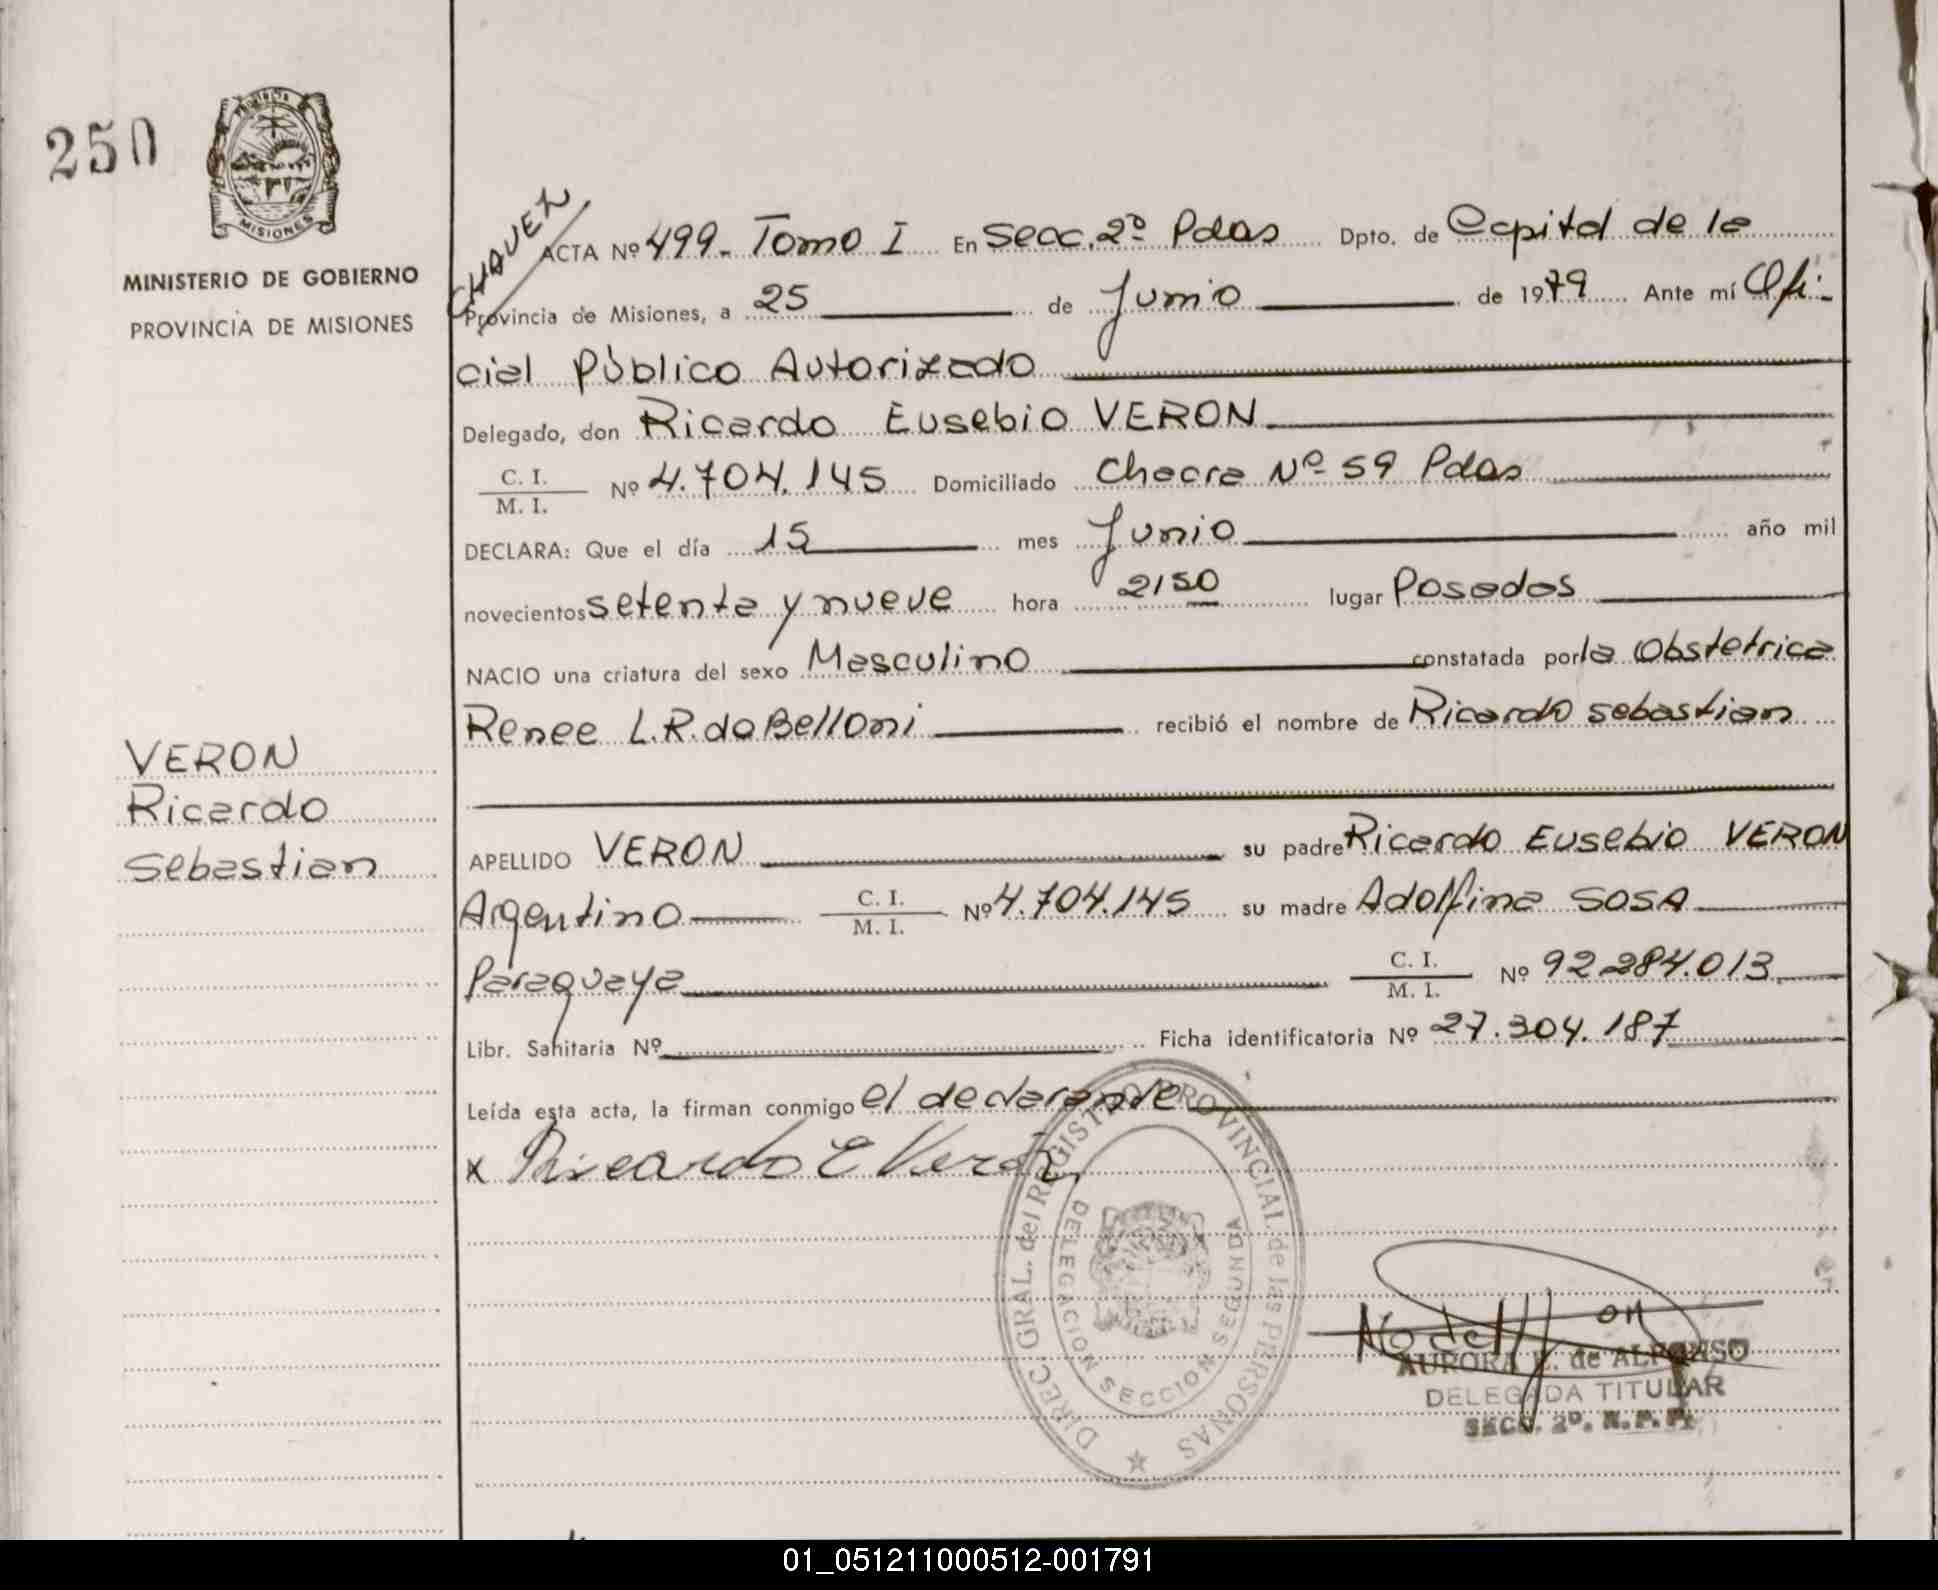 250
PROVINCIA
MISIONES
MINISTERIO DE GOBIERNO
PROVINCIA DE MISIONES
CHAVEZ
ACTA Nº 499. Tomo I En Secc. 2º Pdas Dpto. de Capital de la
Provincia de Misiones, a 25 de Junio de 1979 Ante mí Ofi-
cial Público Autorizado
Delegado, don Ricardo Eusebio VERON
C. I.
M. I. Nº 4.704.145 Domiciliado Chacra Nº 59 Pdas
DECLARA: Que el día 15 mes Junio año mil
novecientos setenta y nueve hora 2150 lugar Posadas
NACIO una criatura del sexo Masculino constatada por la Obstetrica
Renee L.R. de Belloni recibió el nombre de Ricardo Sebastian
VERON
Ricardo
Sebastian
APELLIDO VERON su padre Ricardo Eusebio VERON
Argentino C. I.
M. I. Nº 4.704.145 su madre Adolfina SOSA
Paraguaya C. I.
M. I. Nº 92.284.013
Libr. Sanitaria Nº Ficha identificatoria Nº 27.304.187
Leída esta acta, la firman conmigo el declarante
x Ricardo E Verón
DIREC. GRAL. del REGISTRO PROVINCIAL de las PERSONAS
DELEGACION SECCION SEGUNDA
AURORA E. de ALFONSO
DELEGADA TITULAR
SECC. 2º. R. P. P.
01_051211000512-001791